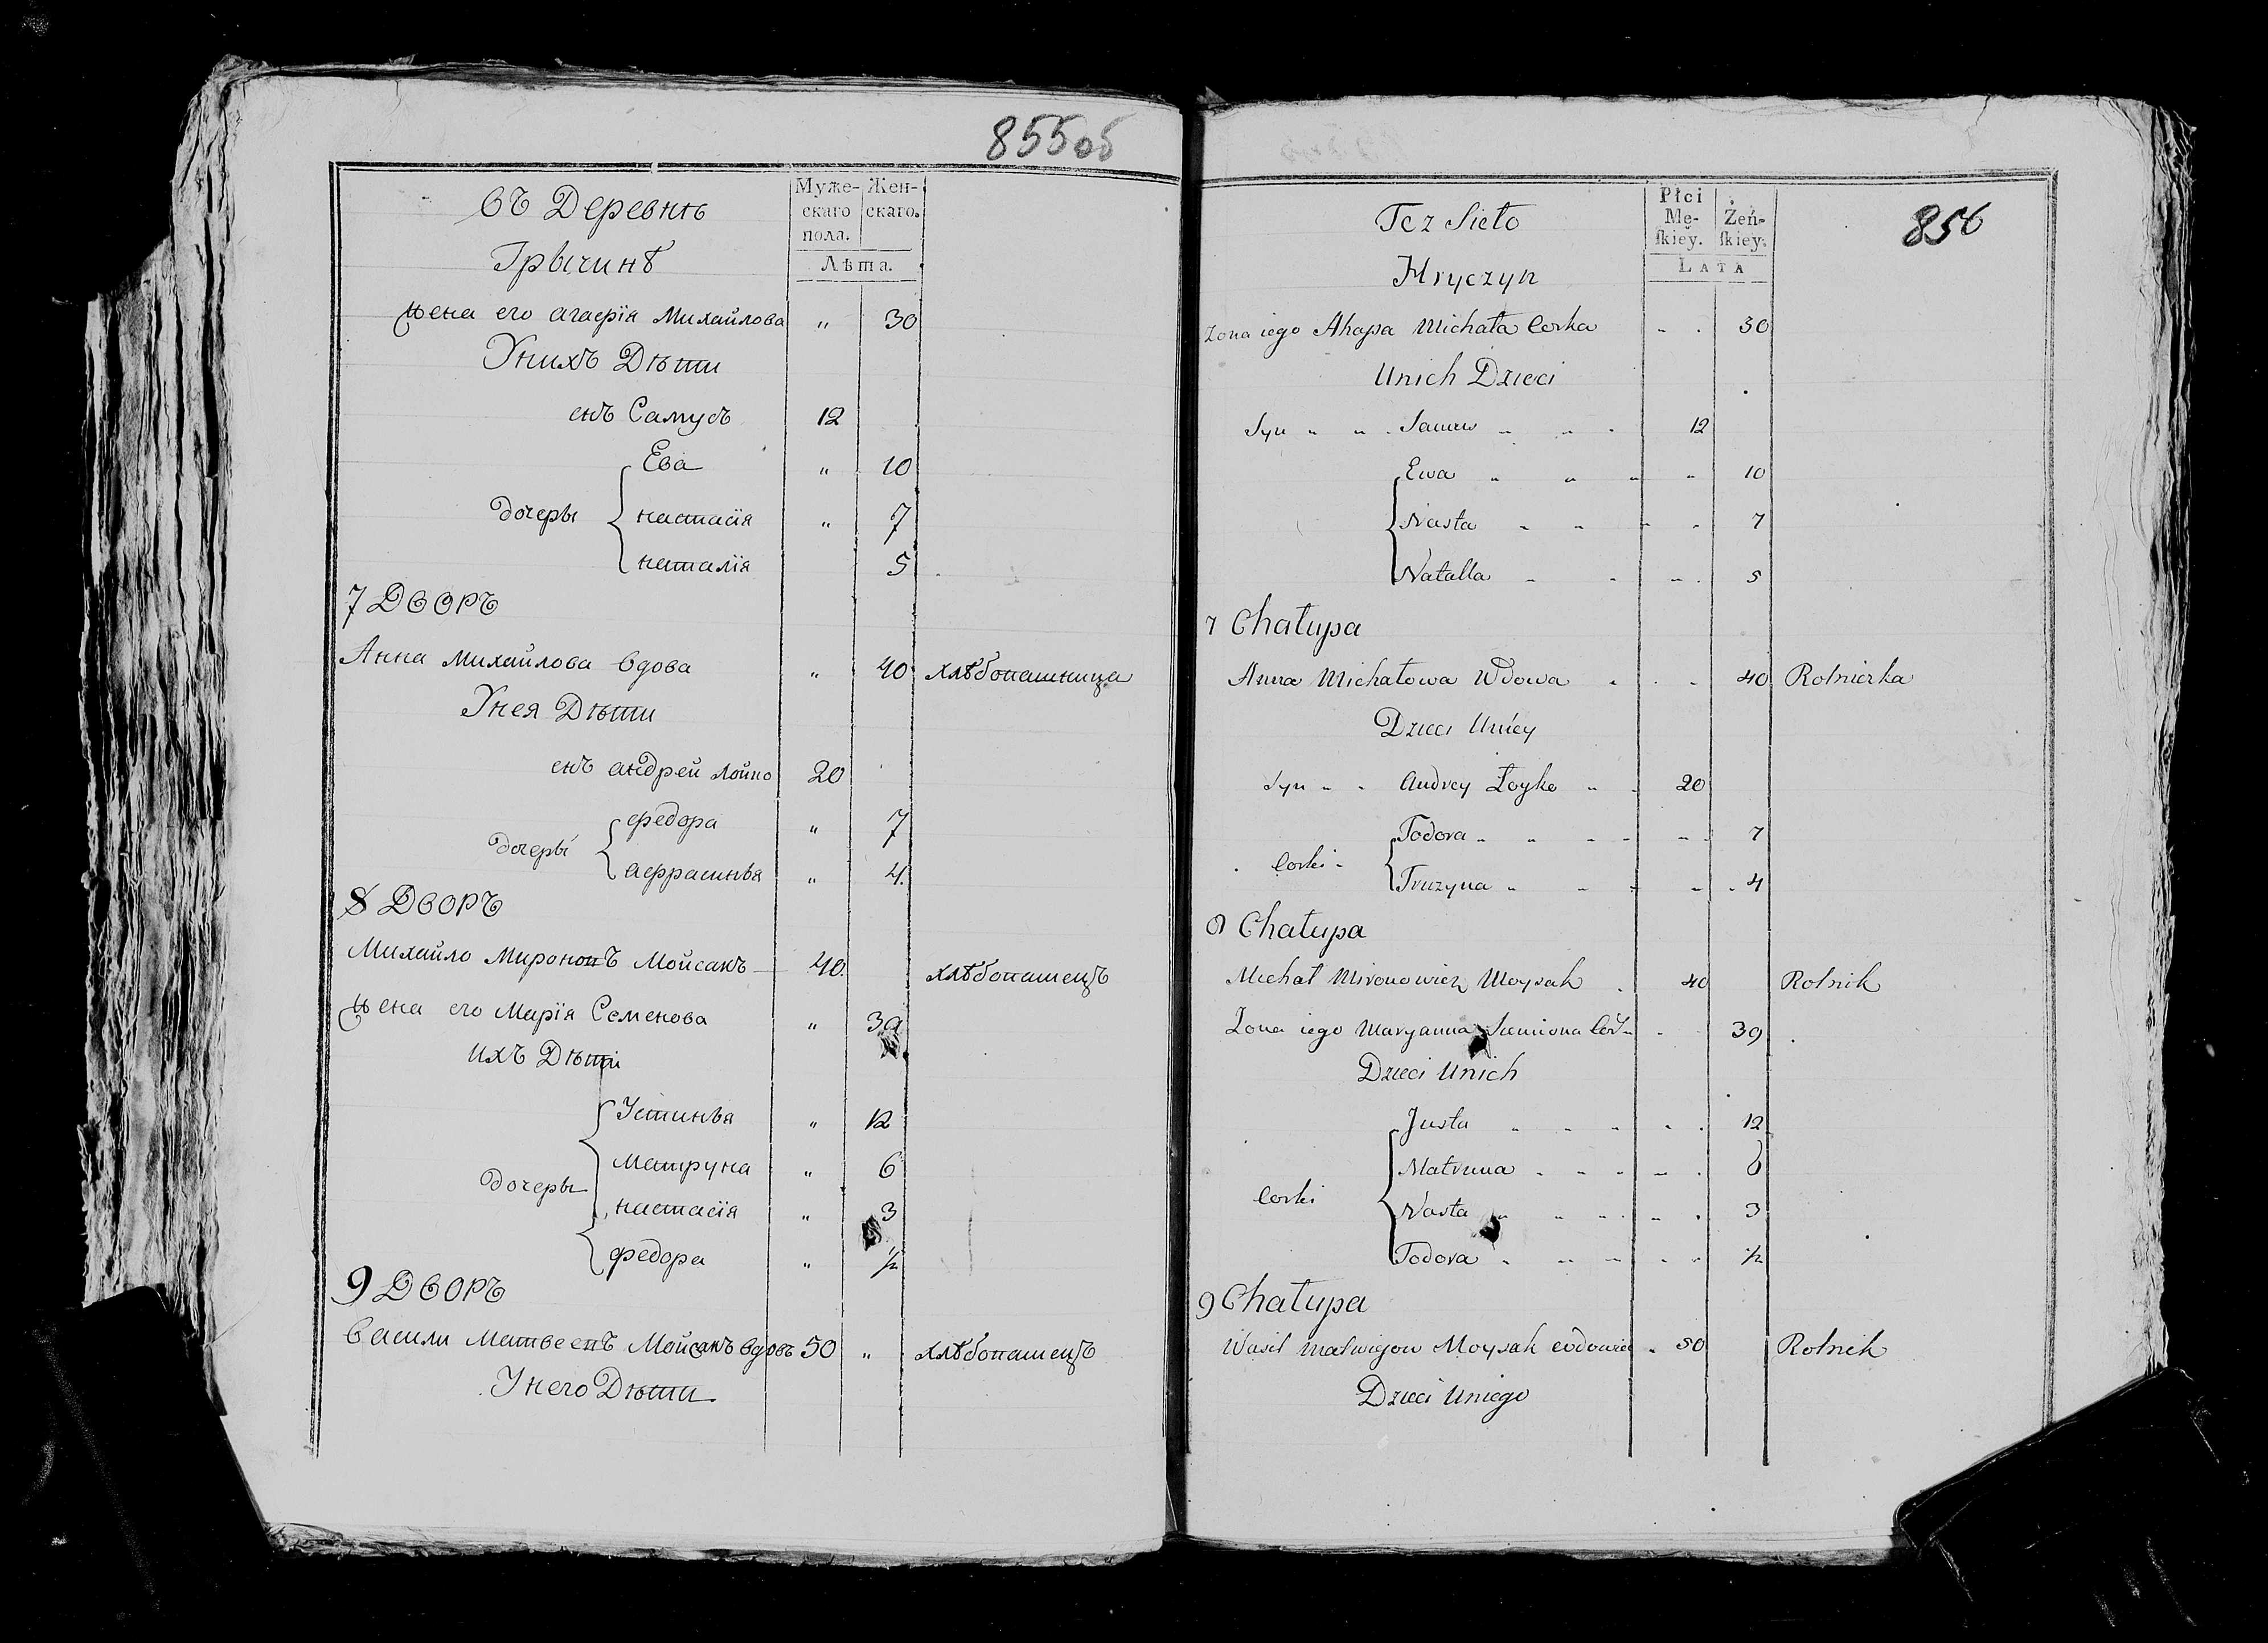 855об
въ Деревнѣ
Грычинѣ
Муже-
скаго
пола.
Жен-
скаго.
Лѣта.
жена его агафiя Михайлова " 30
Унихъ Дѣти
снъ Самусъ 12
Ева " 10
дочеры настасiя " 7
наталiя 5
7 Дворъ
Анна Михайлова вдова " 40 хлѣбопашница
Унея Дѣти
снъ андрей Лойко 20
федора " 7
дочеры
афрасинья " 4
8 Дворъ
Михайло Миронопъ Мойсакъ 40 хлѣбопашецъ
жена его Марiя Семенова " 39
ихъ Дѣти
Устинья " 12
матруна " 6
дочеры
настасiя " 3
федора " ½
9 Дворъ
Васили Матвеепъ Мойсакъ вдовъ 50 " хлѣбопашецъ
Унего Дѣти
856
Tez Sieło
Hryczyn
Płci
Mę-
skiey.
Żeń-
skiey.
LATA
Zona iego Ahapa Michała Corka 30
Unich Dzieci
Syn Samus 12
Ewa 10
Nasta 7
Natalla 5
7 Chałupa
Anna Michałowa Wdowa 40 Rolniczka
Dzieci Uniey
Syn Andrey Łoyko 20
Todora 7
Corki
Pruzyna 4
8 Chałupa
Michał Mironowicz Moysak 40 Rolnik
Zona iego Maryanna Siemiona Cor 39
Dzieci Unich
Justa 12
Matruna 6
Corki
Nasta 3
Todora ½
9 Chałupa
Wasil Matwiejow Moysak wdowiec 50 Rolnik
Dzieci Uniego